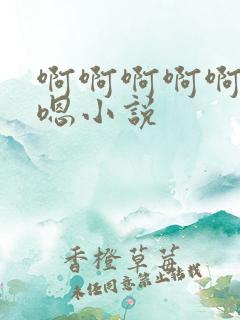 啊啊啊啊啊
嗯小说
香橙草莓
未经同意禁止转载